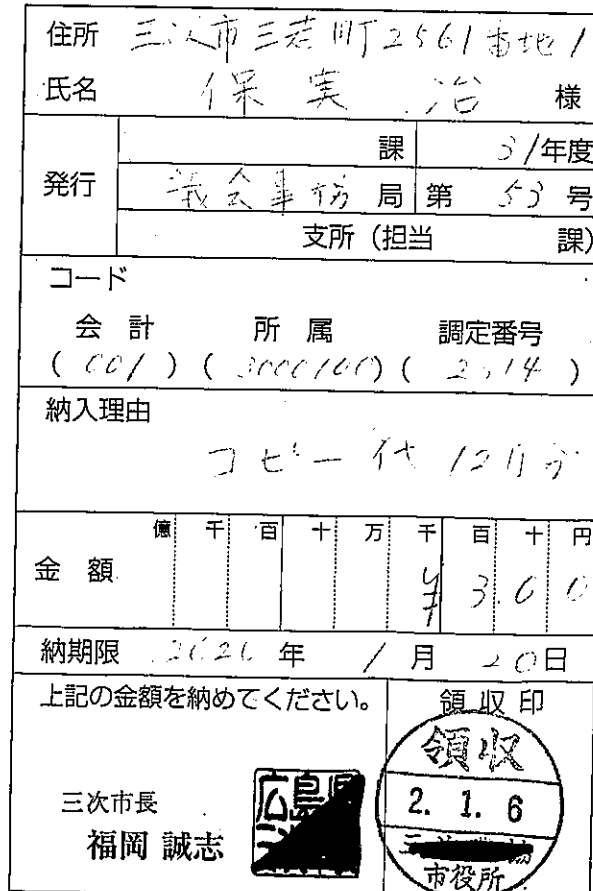 住所 三次市三若町2561番地1
氏名 保実 治 様
発行
課 31年度
議会事務局 第 53 号
支所（担当 課）
コード
会計 所属 調定番号
(001) (3000100) ( )
納入理由
コピー代 12月分
億 千 百 十 万 千 百 十 円
金額 ¥300
納期限 2020年 1月 20日
上記の金額を納めてください。
領収印
三次市長
福岡 誠志
広島県
領収
2. 1. 6
市役所